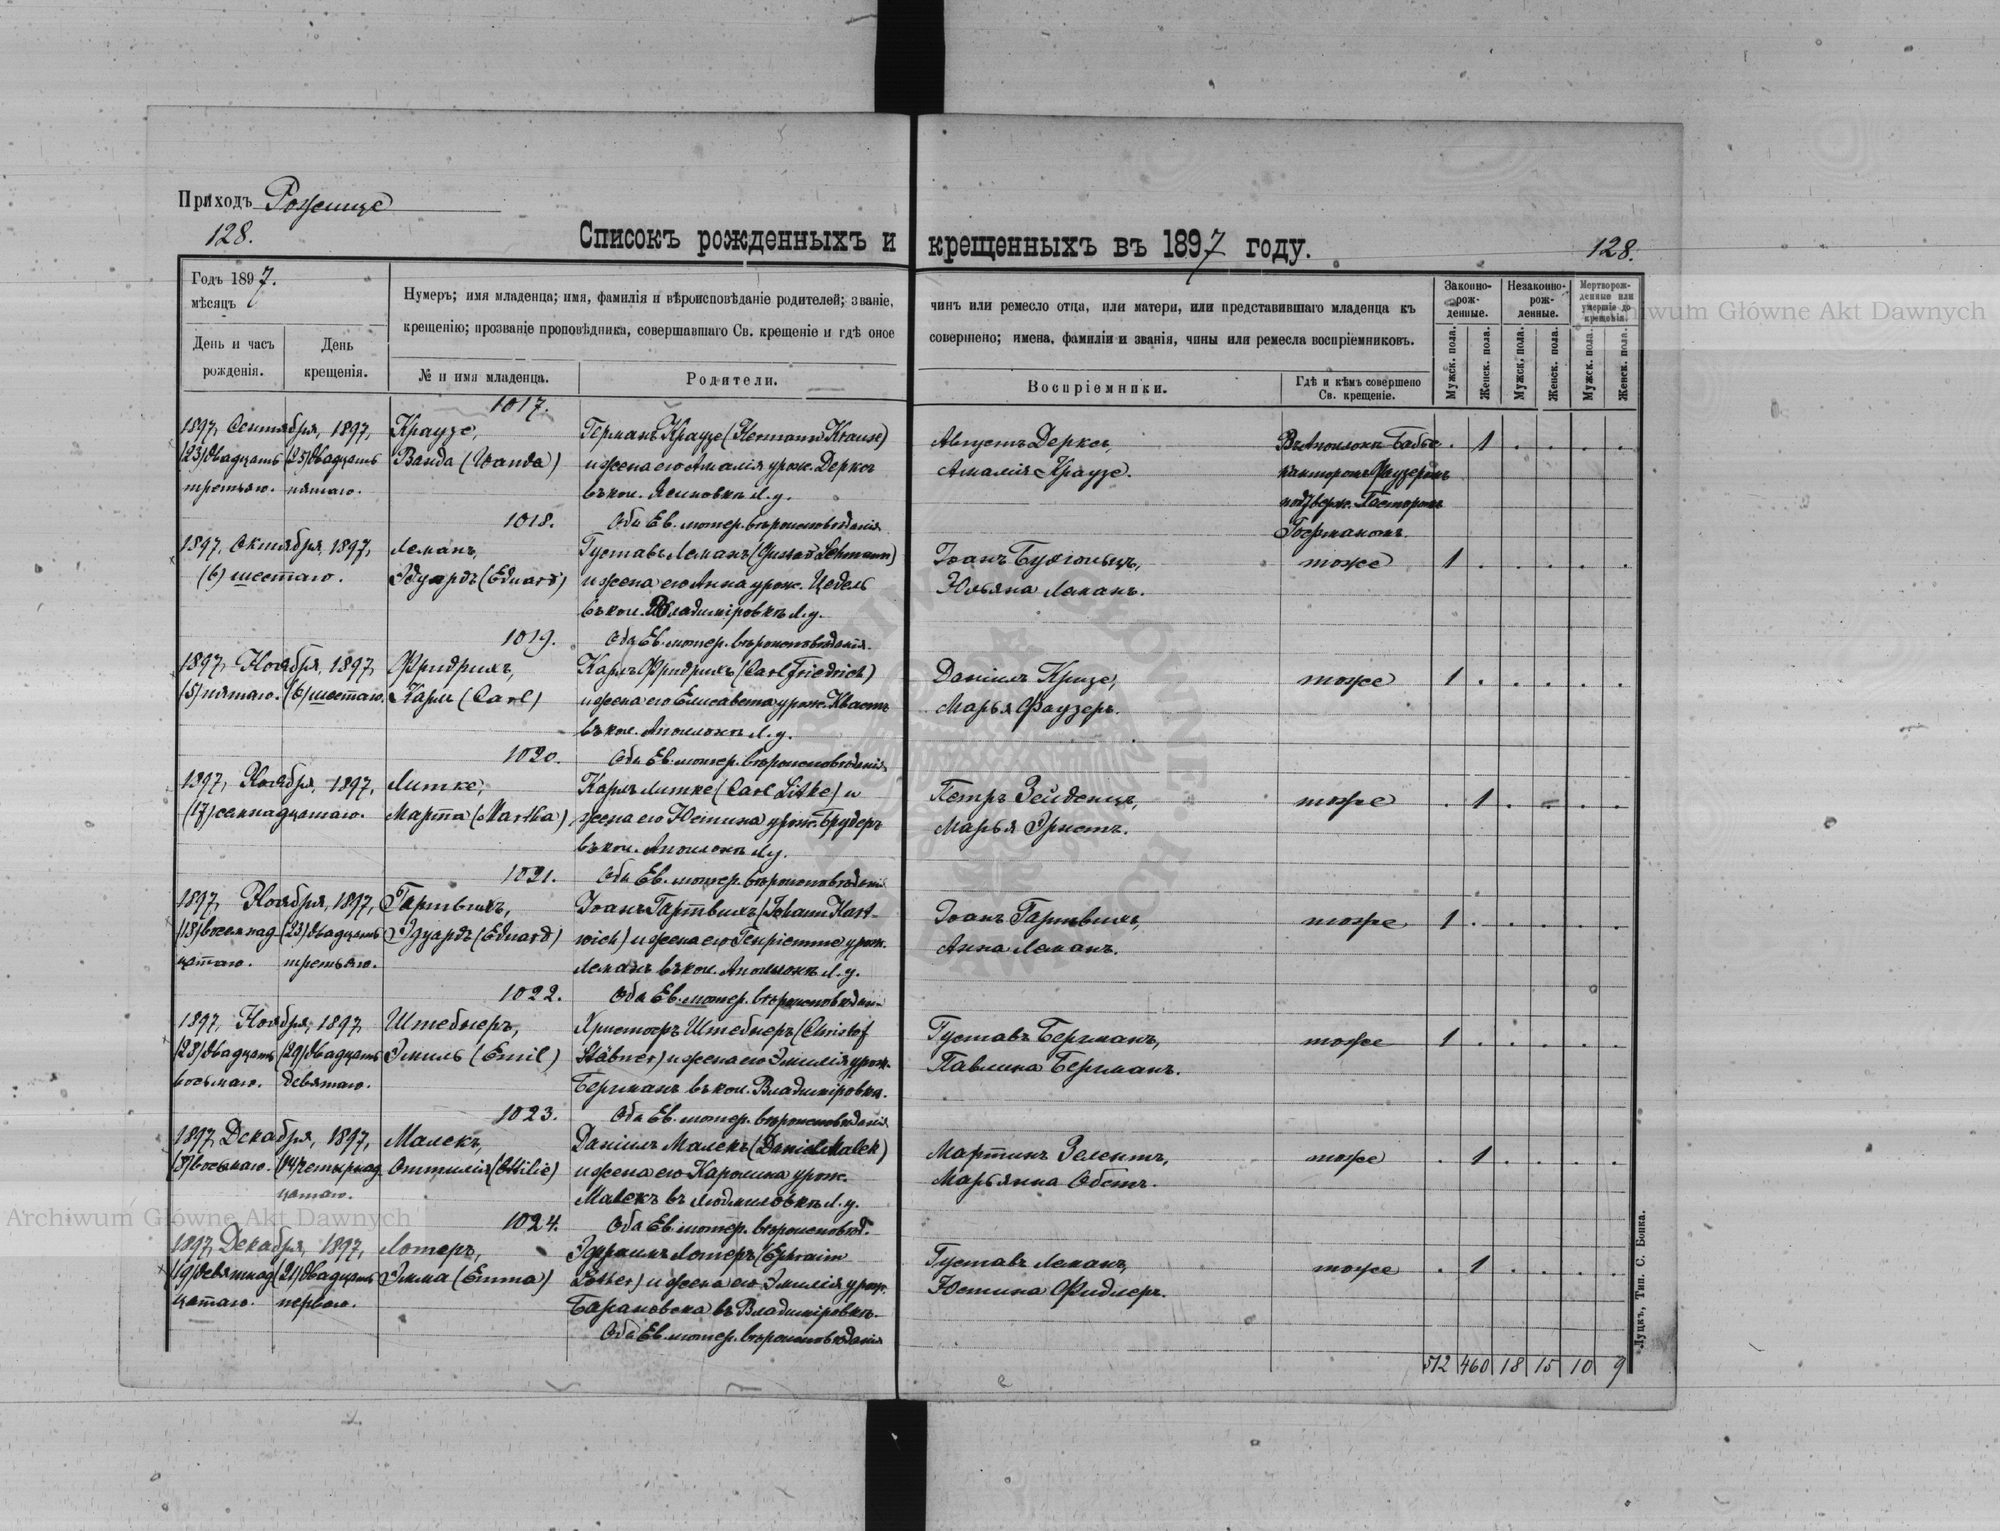 Приходъ Рожище
128.
Списокъ рожденныхъ и крещенныхъ въ 1897 году.
128.
Годъ 1897.
мѣсяцъ
День и часъ
рожденія.
День
крещенія.
Нумеръ; имя младенца; имя, фамилія и вѣроисповѣданіе родителей; званіе,
крещенію; прозваніе проповѣдника, совершавшаго Св. крещеніе и гдѣ оное
№ и имя младенца.
Родители.
чинъ или ремесло отца, или матери, или представившаго младенца къ
совершено; имена, фамиліи и званія, чины или ремесла воспріемниковъ.
Воспріемники.
Гдѣ и кѣмъ совершено
Св. крещеніе.
Законно-
рож-
денные.
Незаконно-
рож-
денные.
Мертворож-
денные или
умершіе до
крещенія.
Мужск. пола.
Женск. пола.
Мужск. пола.
Женск. пола.
Мужск. пола.
Женск. пола.
1017.
1897, Сентября, 1897, Краузе, Германъ Краузе (Hermann Krause) Августъ Деркс,
(23) двадцать (25) двадцать Ванда (Wanda) и жена его Амалія урож. Деркс Амалія Краузе. 1
третьяго. пятаго. въ кол. Л. у.
канторомъ Фаузеромъ
подтверж. Пасторомъ
1018. Оба Ев. лютер. вѣроисповѣданія
1897, Октября, 1897, Леманъ, Густавъ Леманъ (Gustav Lehmann) Іоанъ тоже 1
(6) шестаго. Эдуардъ (Eduard) и жена его Анна урож. Цедель Юльяна Леманъ.
въ кол. Владиміровкѣ Л. у.
1019. Оба Ев. лютер. вѣроисповѣданія.
1897, Ноября, 1897, Фридрихъ, Карлъ Фридрихъ (Carl Friedrich) Даніилъ Кризе, тоже 1
(5) пятаго. (6) шестаго. Карлъ (Carl) и жена его Елисавета урож. Квастъ Марья Фаузеръ.
въ кол. Аполонкѣ Л. у.
1020. Оба Ев. лютер. вѣроисповѣданія
1897, Ноября, 1897, Литке, Карлъ Литке (Carl Litke) и Петръ Зейденцъ, тоже 1
(17) семнадцатаго. Марта (Martha) жена его Юстина урож. Брудеръ Марья Эрнстъ.
въ кол. Аполонкѣ Л. у.
1021. Оба Ев. лютер. вѣроисповѣданія
1897, Ноября, 1897, Гартвихъ, Іоанъ Гартвихъ (Johann Hart- Іоанъ Гартвихъ, тоже 1
(18) восемнад (23) двадцать Эдуардъ (Eduard) wich) и жена его Генріетте урож. Анна Леманъ.
цатаго. третьяго. Леманъ въ кол. Аполонкѣ Л. у.
1022. Оба Ев. лютер. вѣроисповѣдан.
1897, Ноября, 1897, Штебнеръ, Христофъ Штебнеръ (Christof Густавъ Бергманъ, тоже 1
(28) двадцать (29) двадцать Эмиль (Emil) Stäbner) и жена его Эмилія урож. Павлина Бергманъ.
восьмаго. девятаго. Бергманъ въ кол. Владиміровкѣ.
1023. Оба Ев. лютер. вѣроисповѣданія
1897, Декабря, 1897, Малекъ, Даніилъ Малекъ (Daniel Malek) Мартинъ Зелентъ, тоже 1
(8) восьмаго. (14) четырнад Оттилія (Ottilie) и жена его Каролина урож. Марьянна Обстъ.
цатаго. Малекъ въ Людмиловкѣ Л. у.
1024. Оба Ев. лютер. вѣроисповѣд.
1897, Декабря, 1897, Лотеръ, Эфраимъ Лотеръ (Ephraim Густавъ Леманъ, тоже 1
(19) девятнад (21) двадцать Эмма (Emma) Lotter) и жена его Эмилія урож. Юстина Фидлеръ.
цатаго. перваго. Барановска въ Владиміровкѣ.
Оба Ев. лютер. вѣроисповѣданія
512 460 18 15 10 9
Луцкъ, Тип. С. Бонка.
Archiwum Główne Akt Dawnych
Archiwum Główne Akt Dawnych